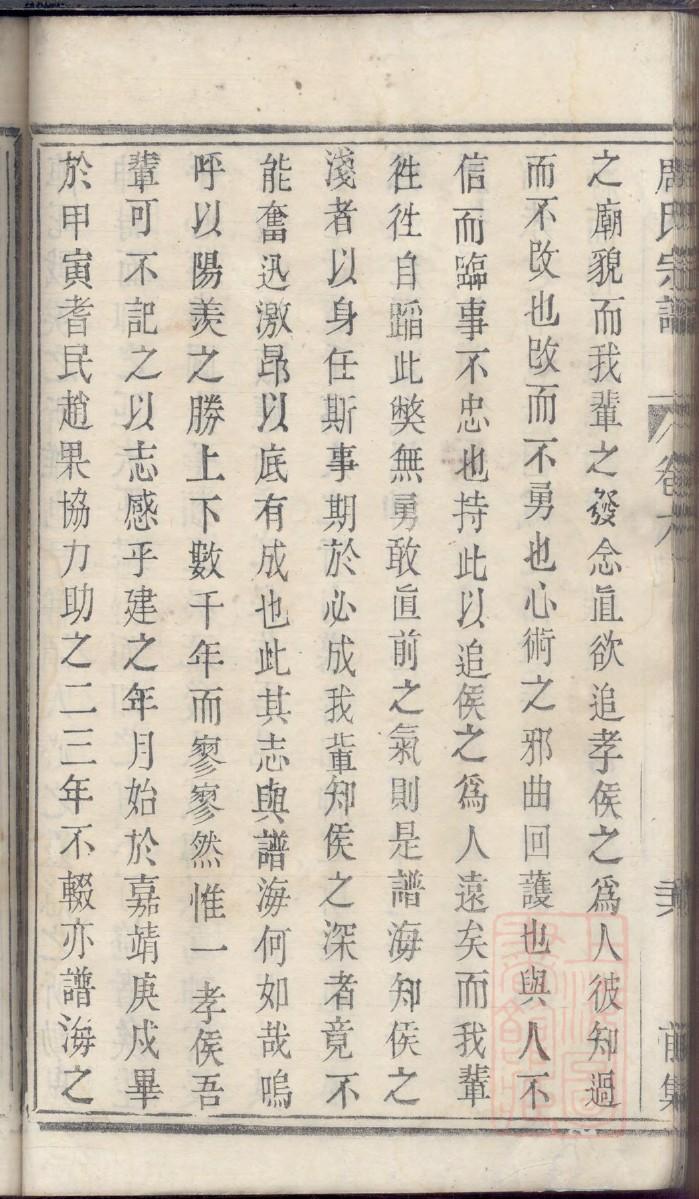 周氏宗譜 卷六 前集
之廟貌而我輩之發念眞欲追孝侯之爲人彼知過
而不改也改而不勇也心術之邪曲回護也與人不
信而臨事不忠也持此以追侯之爲人遠矣而我輩
徃徃自蹈此獘無勇敢直前之氣則是譜海知侯之
淺者以身任斯事期於必成我輩知侯之深者竟不
能奮迅激昂以底有成也此其志與譜海何如哉嗚
呼以陽羨之勝上下數千年而寥寥然惟一 孝侯吾
輩可不記之以志感乎建之年月始於嘉靖庚戍畢
於甲寅耆民趙果協力助之二三年不輟亦譜海之